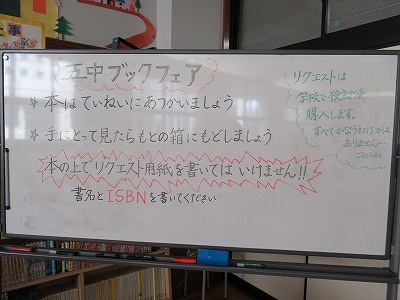 五中ブックフェア
* 本はていねいにあつかいましょう
* 手にとって見たらもとの箱にもどしましょう
本の上でリクエスト用紙を書いてはいけません!!
書名とISBNを書いてください
リクエストは
学校で検討後
購入します。
すべてかなうわけでは
ありません…